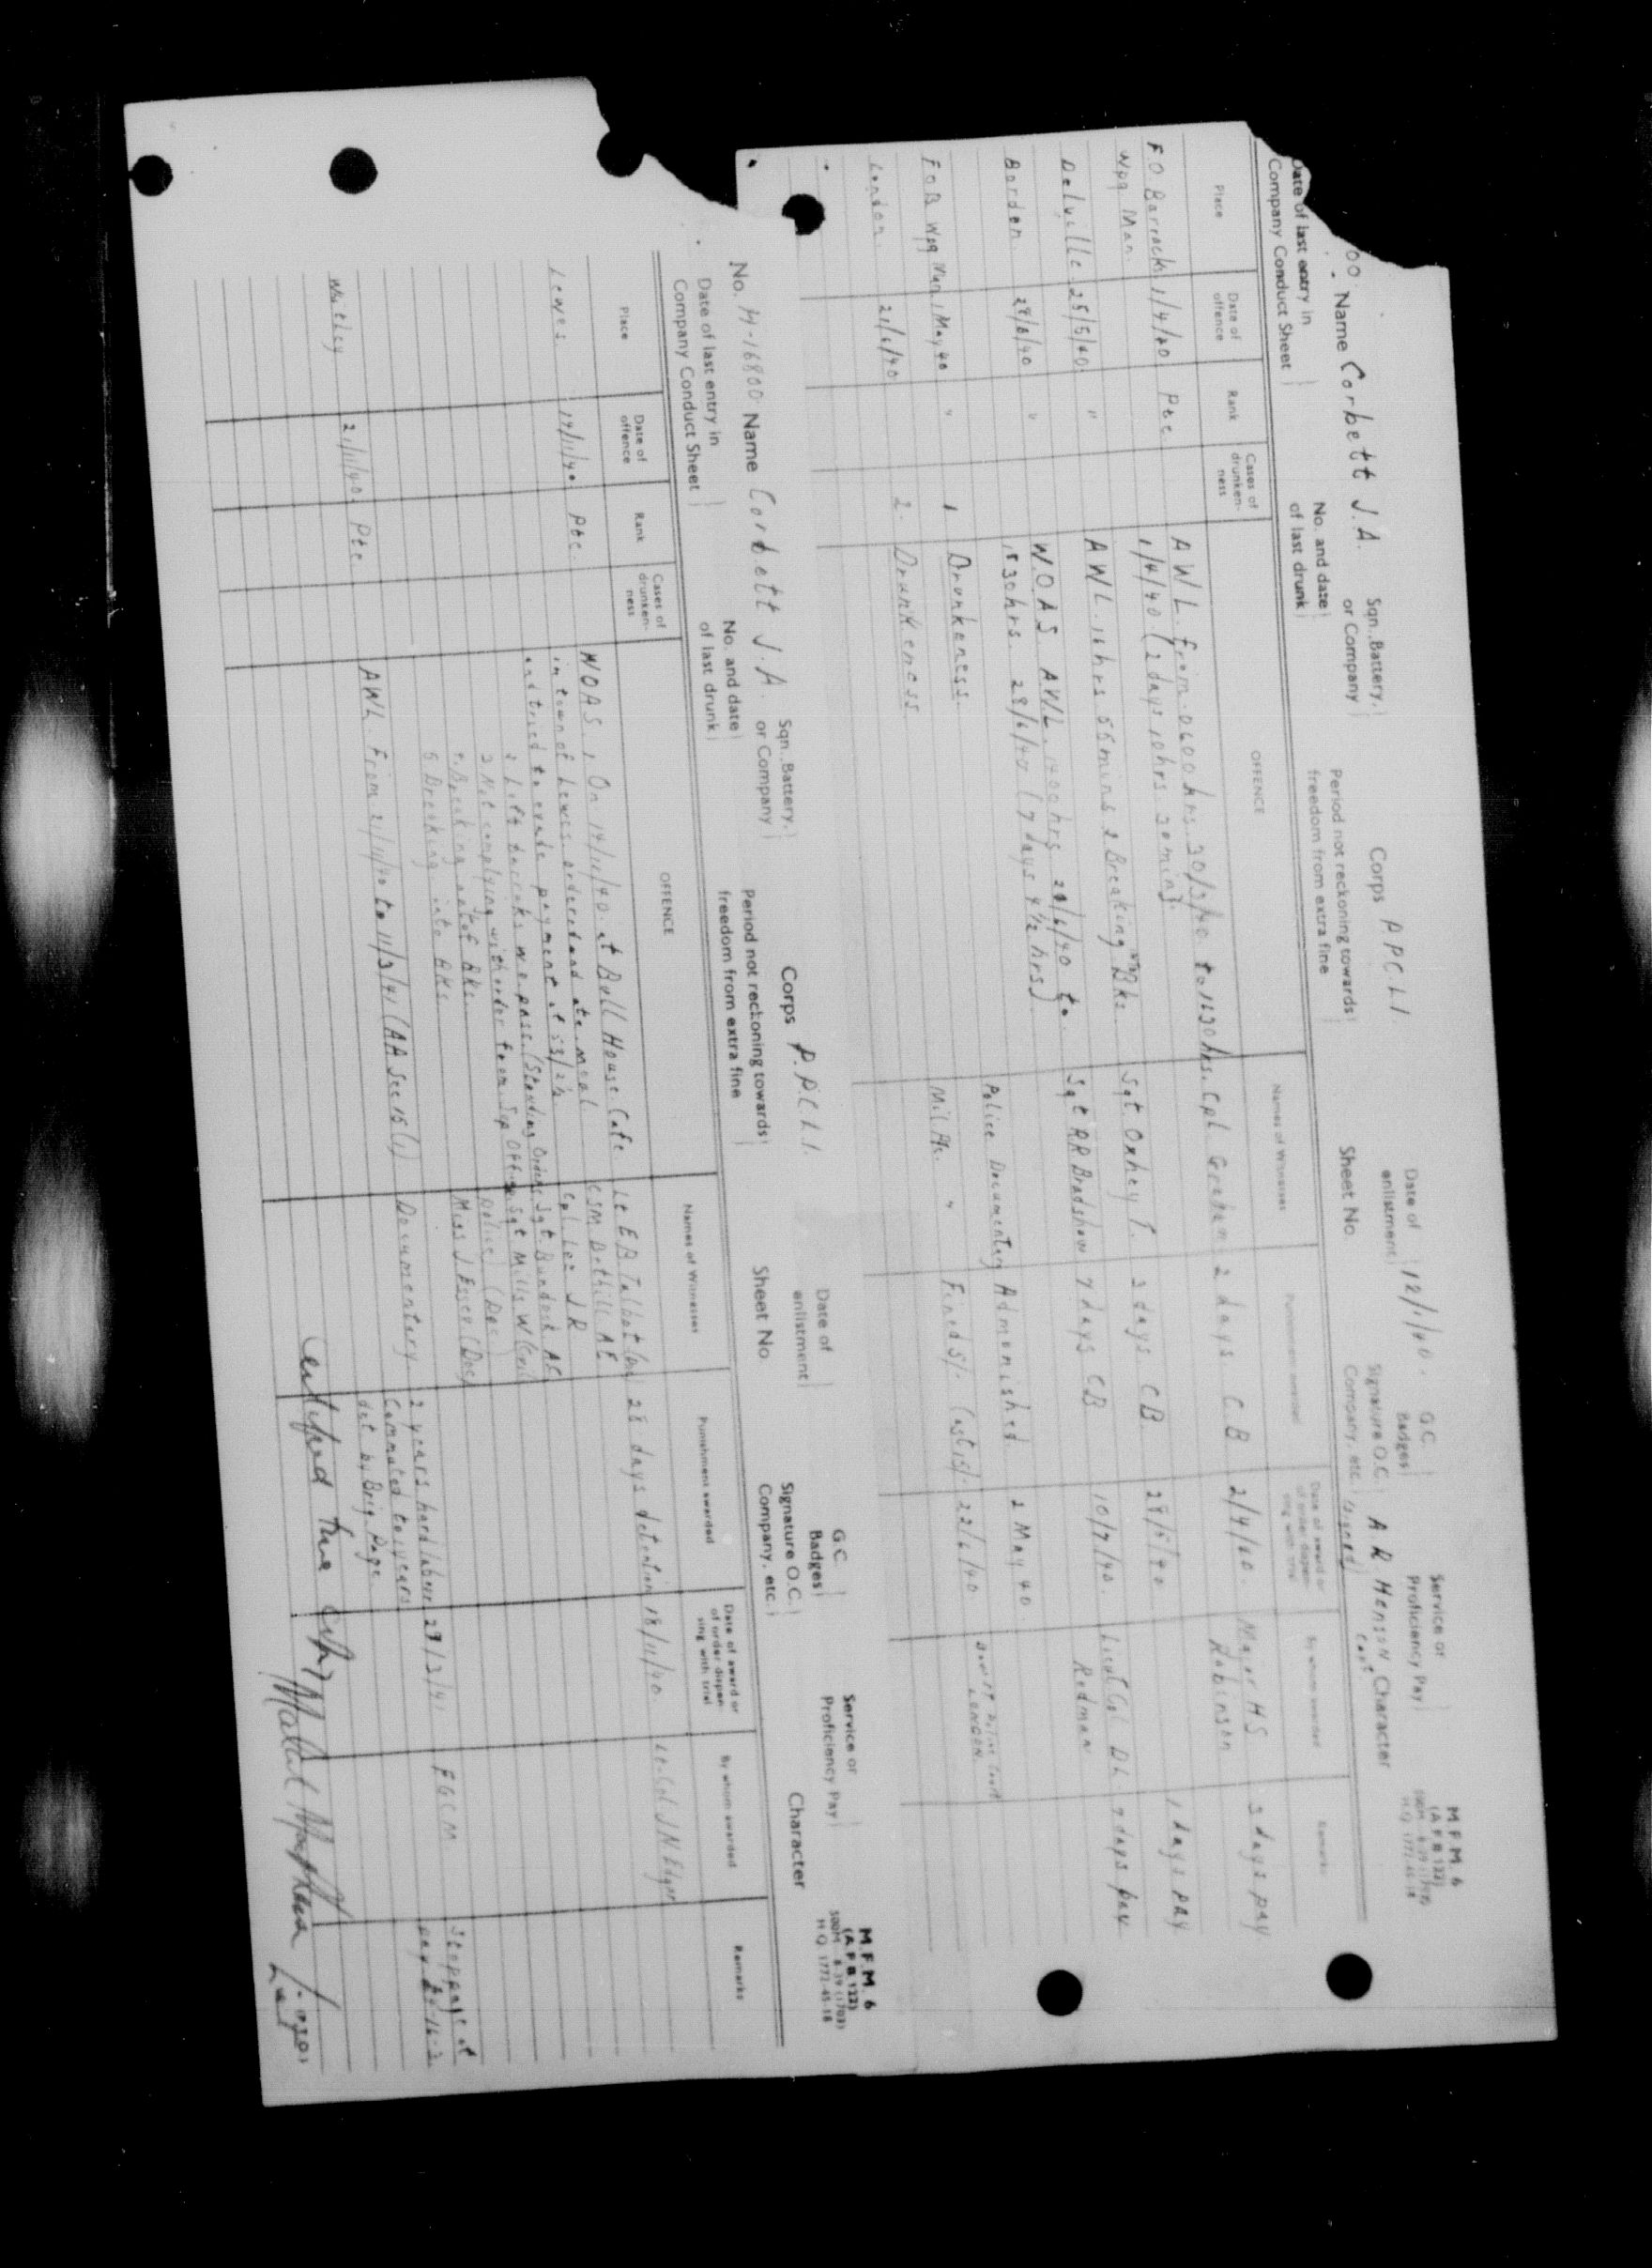 M.F.M. 6
(A.F.B. 122)
500M 8-39 (1703)
H.Q. 1772-45-18
Date of enlistment 12/1/40. G.C. Badges Service or Proficiency Pay
00. Name Corbett J.A. Sqn., Battery, or Company Corps PPCLI Sheet No. Signature O.C. Company, etc. (signed) A R Henson Capt. Character
Date of last entry in Company Conduct Sheet No. and date of last drunk Period not reckoning towards freedom from extra fine
Place Date of offence Rank Cases of drunken-ness OFFENCE Names of Witnesses Punishment awarded Date of award or of order dispen-sing with trial By whom awarded Remarks
F O Barracks 1/4/40 Pte. AWL. from 0600 hrs. 30/3/40 to 1630 hrs. Cpl. Graham 2 days C.B 2/4/40. Major HS 3 days pay
Wpg Man. 1/4/40 (2 days 10 hrs. 30 mins). Robinson
Delville 25/5/40 " AWL. 16 hrs. 55 mins 2 Breaking into Bks. Sgt. Oxhey T. 3 days CB. 28/5/40 1 days pay
Borden 28/6/40 " W.O.A.S. AWL. 1400 hrs 21/6/40 to Sgt RR Bradshaw 7 days CB 10/7/40. Lieut Col D L 7 days pay
1830 hrs. 28/6/40 (7 days 4½ hrs) Redman
F O B Wpg Man 1 May 40 " 1 Drunkeness. Police Documentary Admonished 2 May 40
London 21/6/40 2. Drunkeness Mil. " Fined 5/- 22/6/40 LONDON
M.F.M. 6
(A.F.B. 122)
500M 8-39 (1703)
H.Q. 1772-45-18
Date of enlistment G.C. Badges Service or Proficiency Pay
No. H-16800 Name Corbett J.A. Sqn., Battery, or Company Corps P.P.C.L.I. Sheet No. Signature O.C. Company, etc. Character
Date of last entry in Company Conduct Sheet No. and date of last drunk Period not reckoning towards freedom from extra fine
Place Date of offence Rank Cases of drunken-ness OFFENCE Names of Witnesses Punishment awarded Date of award or of order dispen-sing with trial By whom awarded Remarks
Lewes 14/11/40 Pte. WOAS. 1 On 14/11/40. at Bull House Cafe Lt E B Talbot 28 days detention 18/11/40. Lt-Col J N Edgar
in town of Lewes. ordered and ate meal CSM Bethill A E
and tried to evade payment of Cpl Lee J R
2 Left barracks w.o. pass. (Standing Orders Sgt Burdock AS
3 Not complying with order from Sgt Mills W
4. Breaking out of Bks. Police (Doc)
5 Breaking into Bks. Miss J. Essex (Doc)
Witley 21/11/40 Pte AWL. From 21/11/40 to 11/3/41 (AA Sec 15(1) Documentary 2 years hard labour. 29/3/41 FGCM Stoppage of
Commuted to years pay
det by Brig. Page.
Certified True Copy